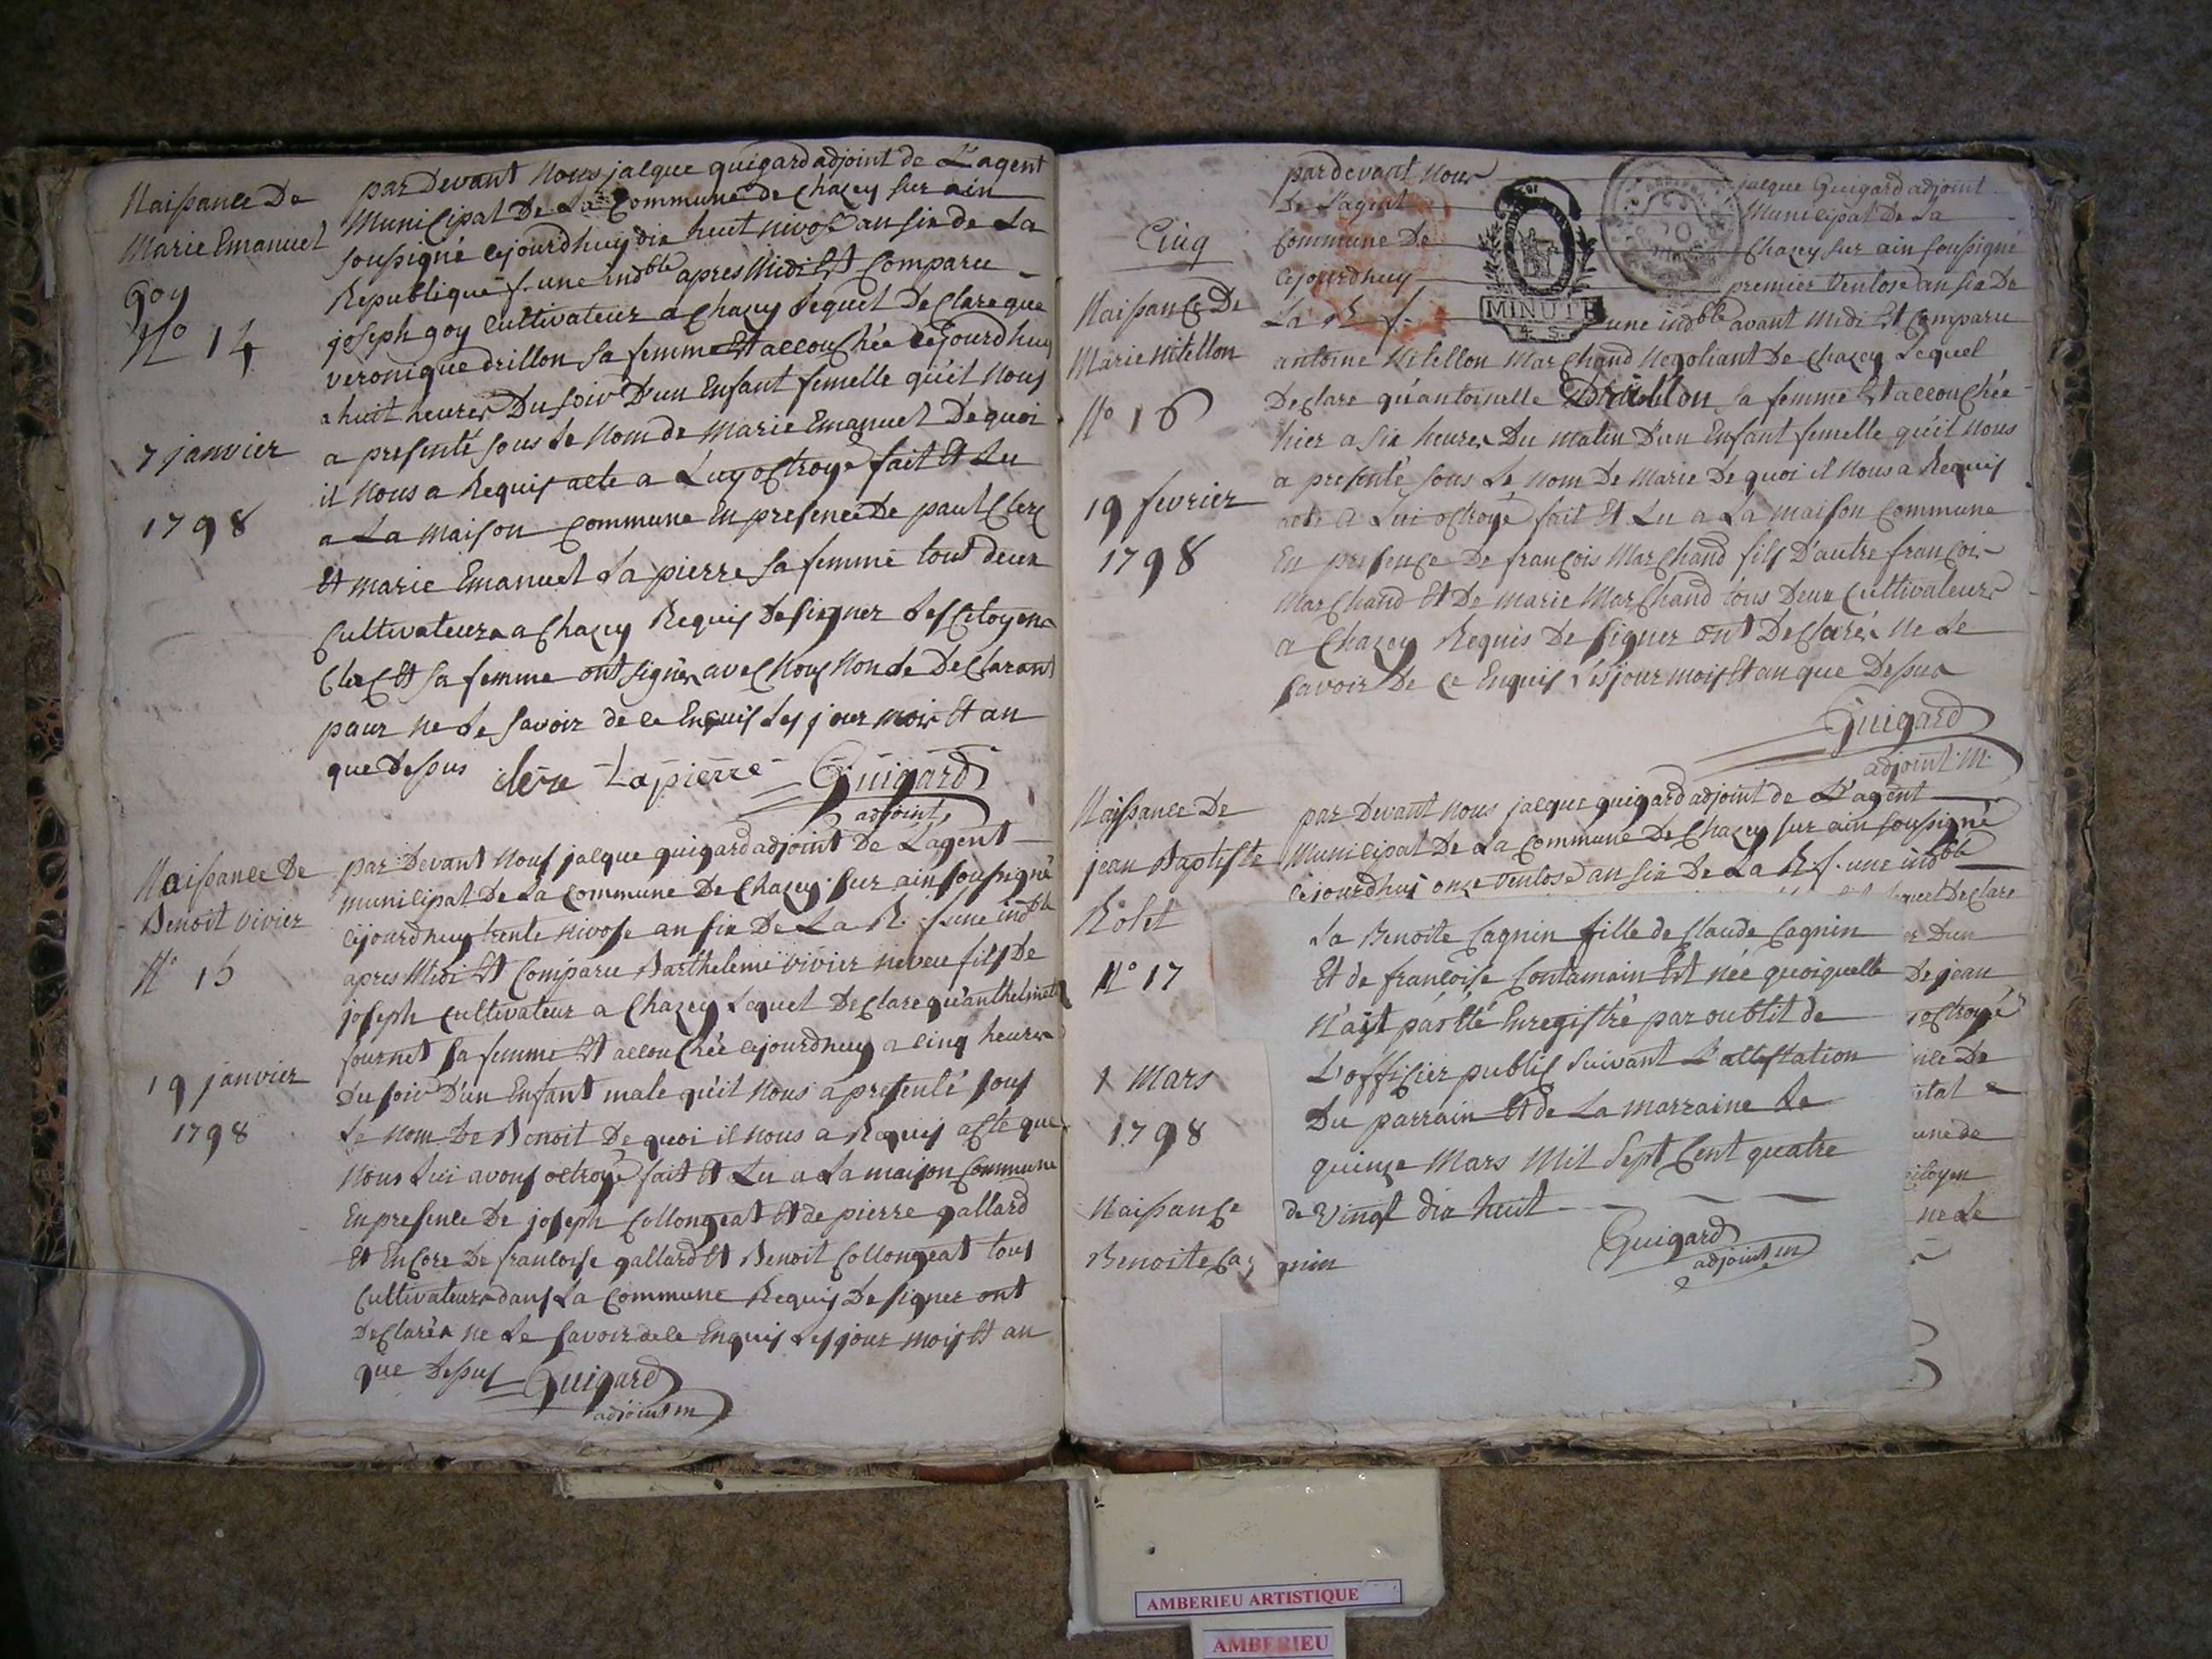 Naissance De
Marie Emanuel
Goy
No 14
7 janvier
1798
par Devant Nous jacque guigard adjoint de L'agent
Municipal De La Commune de chazey sur ain
soussigné cejourdhuy dix huit nivose an six de La
Republique f. une indble apres Midi Et Comparu
joseph goy cultivateur a Chazey Lequel De Clare que
veronique drillon sa femme Est accouchée cejourdhuy
a huit heures Du soir D'un Enfant femelle qu'il Nous
a presenté sous Le Nom de Marie Emanuel De quoi
il Nous a Requis acte a Luy octroyé fait Et Lu
a La maison Commune En presence De paul Clerc
Et marie Emanuel La pierre sa femme tous deux
Cultivateurs a Chazey Requis De signer Les Citoyens
Clerc Et sa femme ont signés avec Nous Non Le Declarant
pour ne Le savoir de ce Enquis Les jour mois Et an
que Dessus clerc Lapierre Guigard
adjoint
Naissance De
Benoit vivier
No 15
19 janvier
1798
par Devant Nous jacque guigard adjoint De L'agent
municipal De La Commune De Chazey sur ain soussigné
cejourdhuy trente nivose an six De La R. f. une indble
apres Midi Et Comparu Barthelemi vivier neveu fils De
joseph Cultivateur a Chazey Lequel De Clare qu'anthelmette
fournet sa femme Est accouchée cejourdhuy a cinq heures
Du soir D'un Enfant male qu'il Nous a presenté sous
Le Nom De Benoit De quoi il Nous a Requis acte que
Nous Lui avons octroyé fait Et Lu a La maison Commune
En presence De joseph Collongeat Et de pierre gallard
Et Encore De francoise gallard Et Benoit Collongeat tous
Cultivateurs dans La Commune Requis De signer ont
De Clarés ne Le savoir de ce Enquis Les jour mois Et an
que Dessus Guigard
adjoint m
Cinq
Naissance De
Marie Nitellon
No 16
19 fevrier
1798
par devant Nous jacque Guigard adjoint
De L'agent Municipal De La
Commune De Chazey sur ain soussigné
cejourdhuy premier Ventose an six De
La R. f. une indble avant Midi Est Comparu
MINUTE
4. S.
antoine Nitellon Marchand Negotiant De Chazey Lequel
De Clare qu'antoinette Drillon sa femme Est accouchée
hier a six heures Du matin D'un Enfant femelle qu'il Nous
a presenté sous Le Nom De Marie De quoi il Nous a Requis
acte a Lui octroyé fait Et Lu a La maison Commune
En presence De françois Marchand fils D'autre françois
Marchand Et De marie Marchand tous Deux Cultivateurs
a Chazey Requis De signer ont De Clarés Ne Le
savoir De ce Enquis Les jour mois Et an que Dessus
Guigard
adjoint M.
Naissance De
jean Baptiste
Rolet
No 17
1 Mars
1798
par Devant Nous jacque guigard adjoint de L'agent
Municipal De La Commune De Chazey sur ain soussigné
cejourdhui onze Ventose an six De La R. f. une indble
Lequel De Clare
D'un
De jean
octroyé
De
une de
citoyen
ne Le
La Benoite Cagnin fille de Claude Cagnin
Et de francoise Contamain Est née quoiquelle
N'ait pas été Enregistré par oublit de
L'officier public suivant L'attestation
Du parrain Et de La marraine Le
quinze Mars Mil Sept Cent quatre
de Vingt dix huit
Naissance
Benoite Cagnin
Guigard
adjoint m
AMBERIEU ARTISTIQUE
AMBERIEU